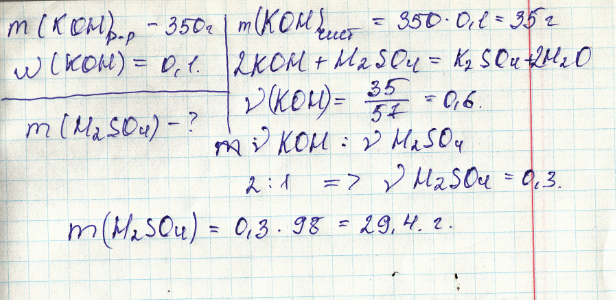 m(KOH)р-р - 350г
w(KOH) = 0,1.
m(H2SO4) - ?
m(KOH)чист = 350·0,1 = 35г
2KOH + H2SO4 = K2SO4+2H2O
ν(KOH) = 35/57 = 0,6.
ν KOH : ν H2SO4
2:1 => ν H2SO4 = 0,3.
m(H2SO4) = 0,3 · 98 = 29,4. г.